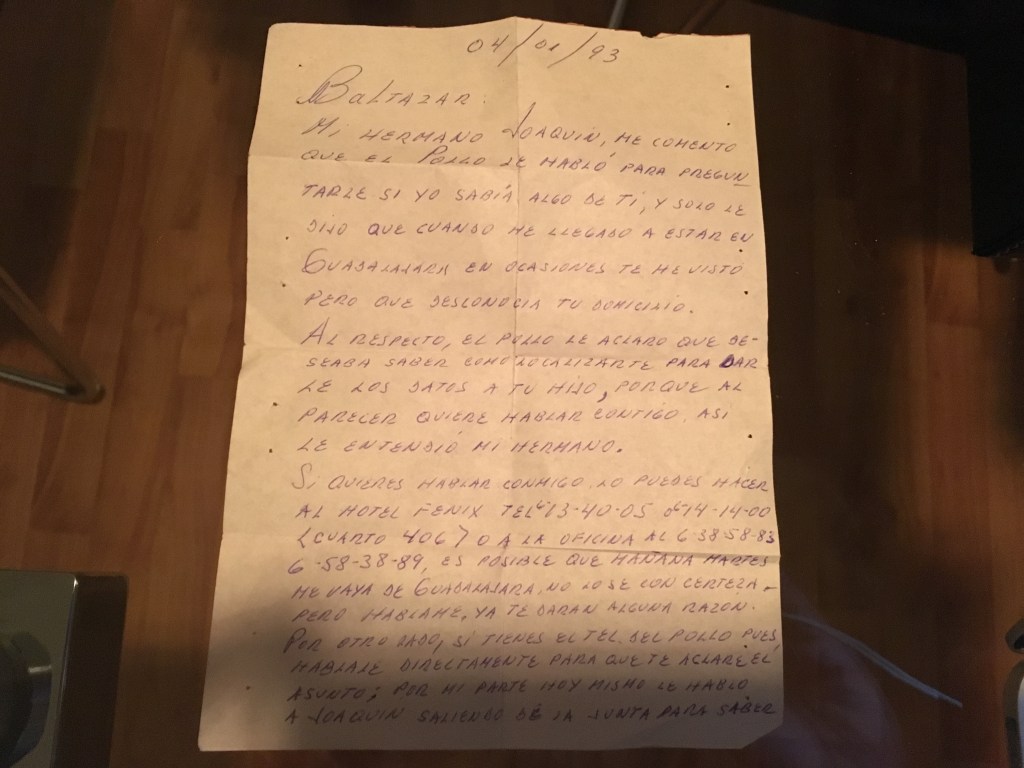 04/01/93
BALTAZAR:
MI HERMANO JOAQUÍN, ME COMENTO
QUE EL POLLO LE HABLÓ PARA PREGUN
TARLE SI YO SABÍA ALGO DE TÍ, Y SOLO LE
DIJO QUE CUANDO HE LLEGADO A ESTAR EN
GUADALAJARA EN OCASIONES TE HE VISTO
PERO QUE DESCONOCIA TU DOMICILIO.
AL RESPECTO, EL POLLO LE ACLARO QUE DE-
SEABA SABER COMO LOCALIZARTE PARA DAR
LE LOS DATOS A TU HIJO, PORQUE AL
PARECER QUIERE HABLAR CONTIGO. ASI
LE ENTENDIÓ MI HERMANO.
SI QUIERES HABLAR CONMIGO LO PUEDES HACER
AL HOTEL FENIX TEL 13-40-05 ó 14-14-00
(CUARTO 406) O A LA OFICINA AL 6-38-58-83
6-58-38-89, ES POSIBLE QUE MAÑANA MARTES
ME VAYA DE GUADALAJARA, NO LO SE CON CERTEZA,
PERO HABLAME, YA TE DARAN ALGUNA RAZON.
POR OTRO LADO, SI TIENES EL TEL. DEL POLLO PUES
HABLALE DIRECTAMENTE PARA QUE TE ACLARE EL
ASUNTO; POR MI PARTE HOY MISMO LE HABLO
A JOAQUIN SALIENDO DE LA JUNTA PARA SABER